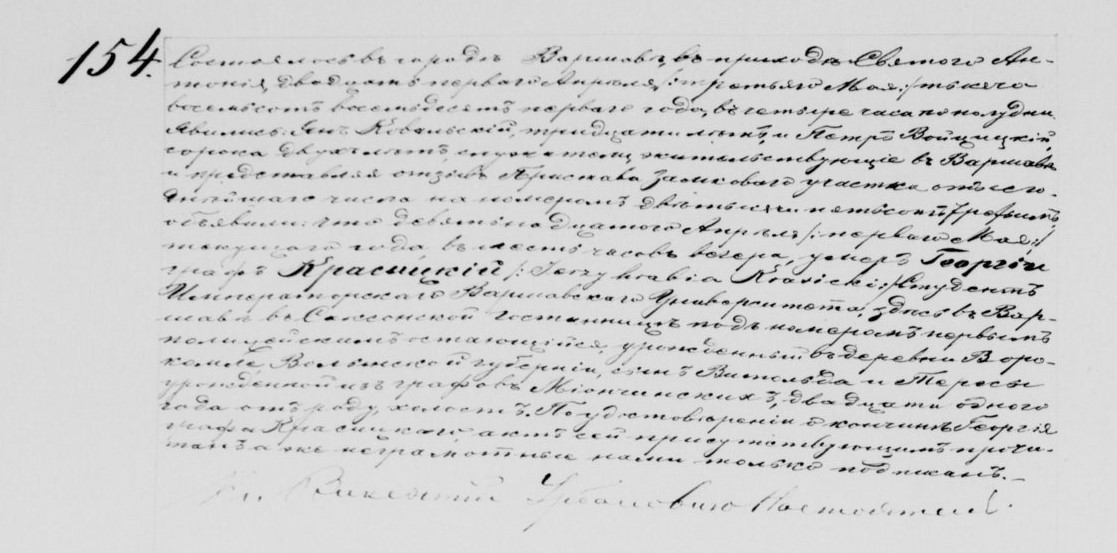 154.
Состоялось въ городѣ Варшавѣ въ приходѣ Святого Ан-
тонія, двадцать перваго Апрѣля /: третьяго Мая :/ тысяча
восемьсотъ восемьдесятъ перваго года, въ четыре часа по полудни.
Явились: Янъ Ковальскій, тридцати лѣтъ, и Петръ Войцицкій,
сорока двухъ лѣтъ, служители, жительствующіе въ Варшавѣ
и представляя отзывъ Пристава Замковаго участка отъ сего-
дняшнаго числа за номеромъ двѣ тысячи пятьсотъ
объявили: что девятнадцатаго Апрѣля /: перваго Мая :/
текущаго года, въ шесть часовъ вечера, умеръ Георгій
графъ Красицкій /: Jerzy hrabia Krasicki :/ Студентъ
Императорскаго Варшавскаго Университета, здѣсь въ Вар-
шавѣ въ Саксонской гостинницѣ подъ номеромъ первымъ
полицейскимъ остающійся, урожденный въ деревни Воро-
Волынской губерніи, сынъ Витольда и Тересы
урожденной изъ графовъ Мiончинскихъ, двадцати одного
года отъ роду, холостъ. По удостовѣреніи о кончинѣ Георгія
графа Красицкаго, актъ сей присутствующимъ прочи-
танъ а же неграмотные нами только подписанъ.-
Кс. Викентій Урбановичъ Настоятель.